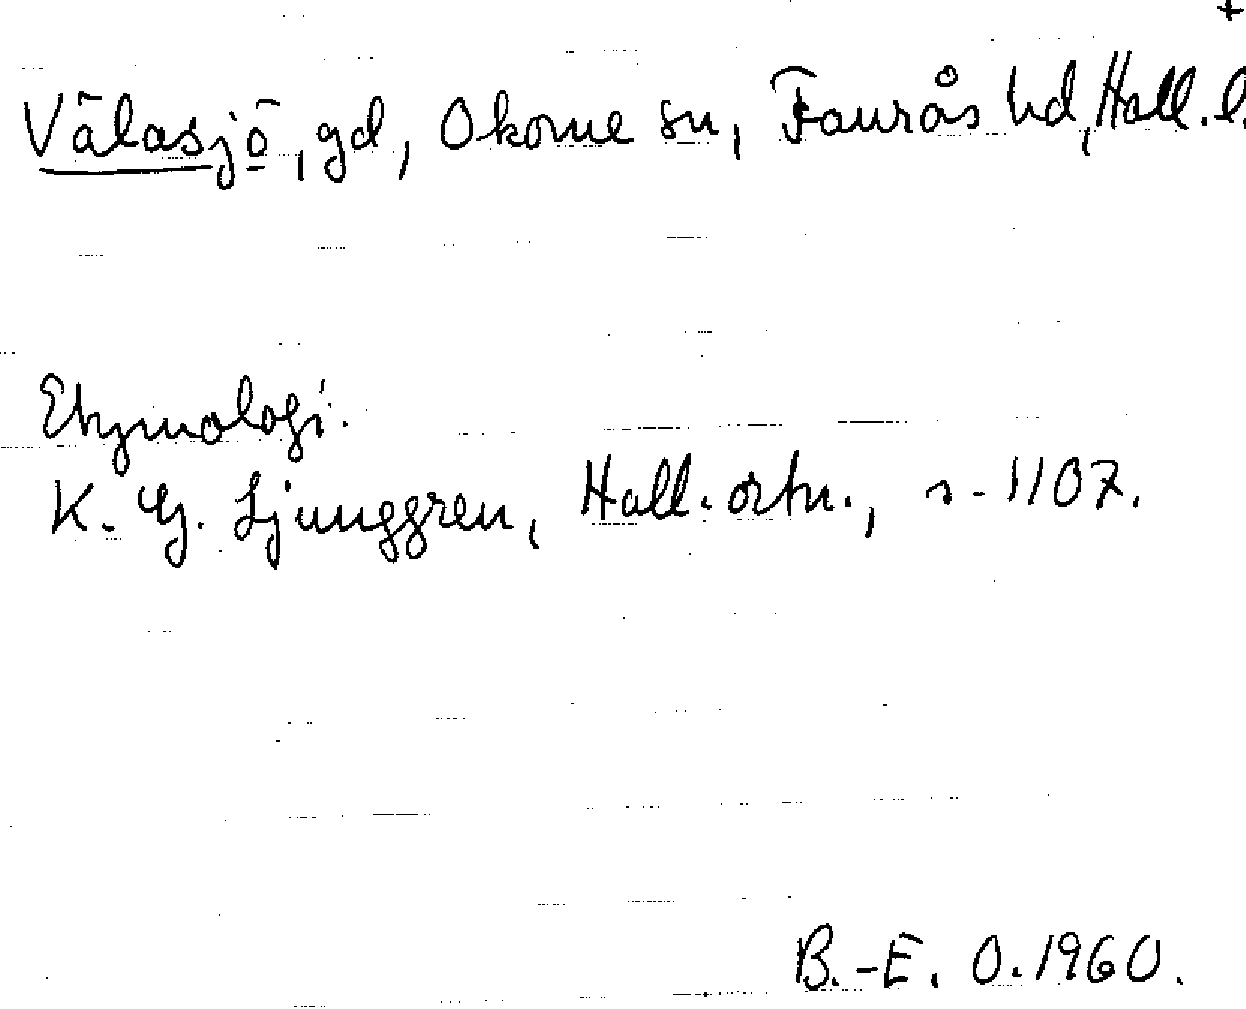 +
Välasjö, gd, Okome sn, Faurås hd, Hall. l.
Etymologi.
K. G. Ljunggren, Hall. ortn., s. 1107.
B.-E. O. 1960.